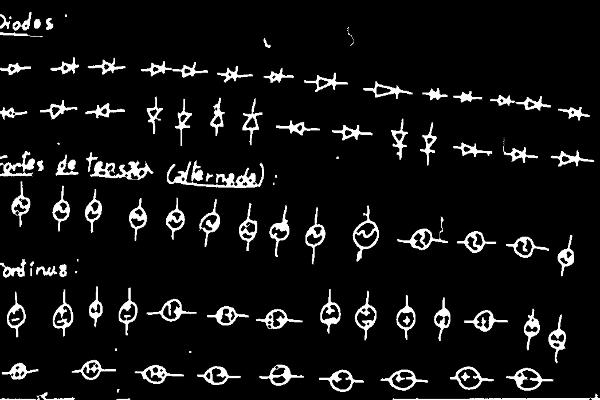 Diodos:
Fontes de tensão (alternada):
Continua: